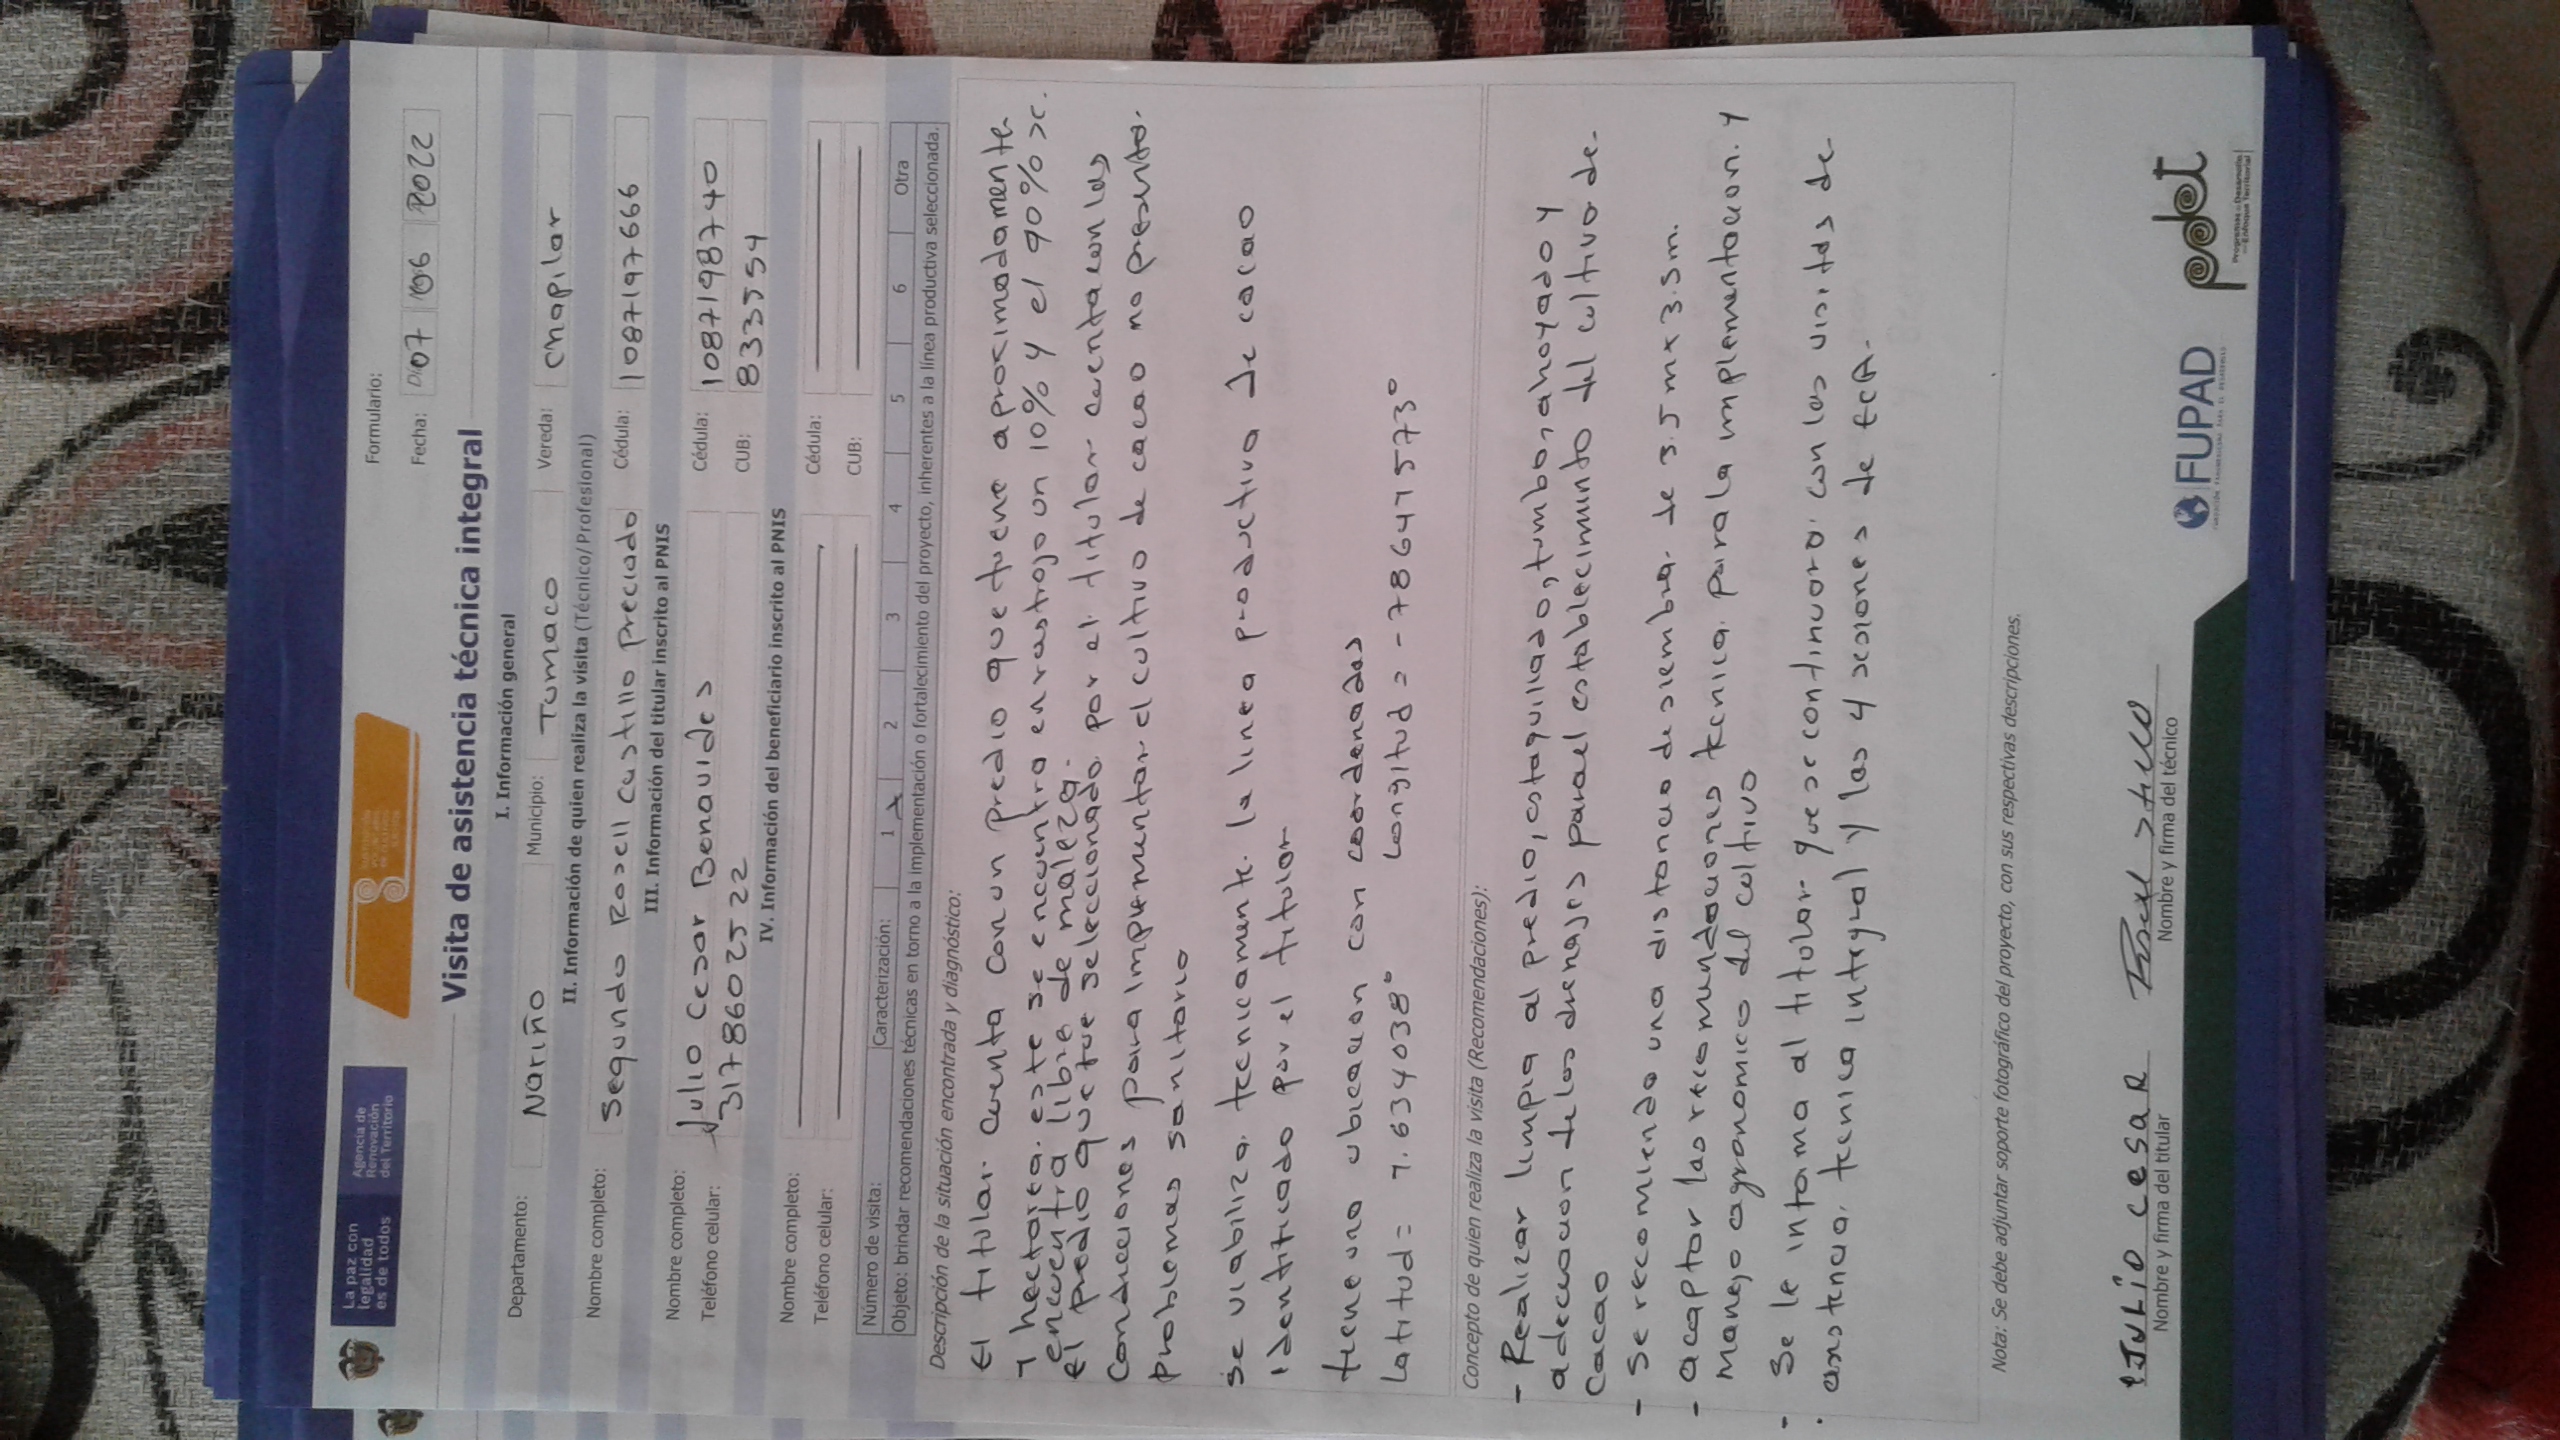 La paz con
legalidad
es de todos
Agencia de
Renovación
del Territorio
Formulario:
Fecha: Día 07 06 2022
Visita de asistencia técnica integral
I. Información general
Departamento: Nariño Municipio: Tumaco Vereda: Chapilar
II. Información de quien realiza la visita (Técnico/Profesional)
Nombre completo: Segundo Rosell Castillo Preciado Cédula: 1087197666
III. Información del titular inscrito al PNIS
Nombre completo: Julio Cesar Benavides Cédula: 1087198740
Teléfono celular: 3178602522 CUB: 833554
IV. Información del beneficiario inscrito al PNIS
Nombre completo: Cédula:
Teléfono celular: CUB:
Número de visita: Caracterización: 1 X 2 3 4 5 6 Otra
Objeto: brindar recomendaciones técnicas en torno a la implementación o fortalecimiento del proyecto, inherentes a la línea productiva seleccionada.
Descripción de la situación encontrada y diagnóstico:
El titular cuenta con un predio que tiene aproximadamente
1 hectarea. este se encuentra enrastrojo un 10% y el 90% se
encuentra libre de maleza.
El predio que fue seleccionado por el titular cuenta con las
Condiciones para implementar el cultivo de cacao no presenta
problemas sanitario
Se viabiliza tecnicamente la linea productiva de cacao
identificado por el titular
tiene una ubicacion con coordenadas
Latitud= 1.634038° Longitud= -78.6471573°
Concepto de quien realiza la visita (Recomendaciones):
- Realizar limpia al predio, estaquillado, tumba, ahoyado y
adecuacion de los drenajes para el establecimiento del cultivo de
Cacao
- Se recomienda una distancia de siembra de 3.5 m x 3.5m.
- acaptar las recomendaciones tecnica para la implementacion y
manejo agronomico del cultivo
- Se le informa al titular que se continuara con las visitas de
asistencia tecnica integral y las 4 sesiones de ECA.
Nota: Se debe adjuntar soporte fotográfico del proyecto, con sus respectivas descripciones.
JULIO CESAR
Nombre y firma del titular
Nombre y firma del técnico
FUPAD
pdet
Programas de Desarrollo
con Enfoque Territorial